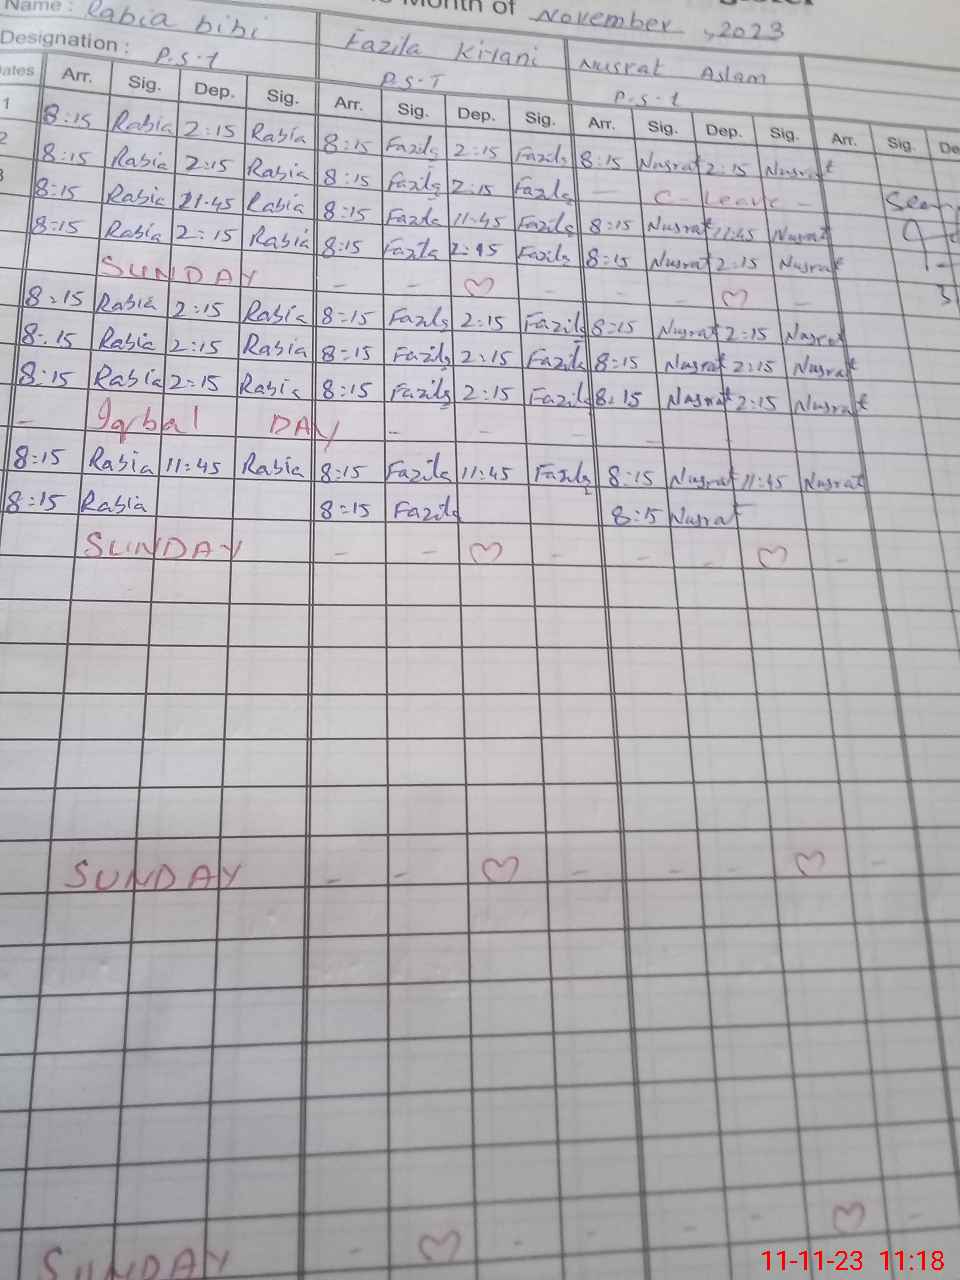 Month of November, 2023
Name: Rabia bibi Fazila Kilani Nusrat Aslam
Designation: P.S.t P.S.T P.S.t
Dates Arr. Sig. Dep. Sig. Arr. Sig. Dep. Sig. Arr. Sig. Dep. Sig. Arr. Sig.
1 8:15 Rabia 2:15 Rabia 8:15 Fazila 2:15 Fazila 8:15 Nusrat 2:15 Nusrat
2 8:15 Rabia 2:15 Rabia 8:15 Fazila 2:15 Fazila - C-Leave -
3 8:15 Rabia 11:45 Rabia 8:15 Fazila 11:45 Fazila 8:15 Nusrat 11:45 Nusrat
8:15 Rabia 2:15 Rabia 8:15 Fazila 2:15 Fazila 8:15 Nusrat 2:15 Nusrat
SUNDAY
8:15 Rabia 2:15 Rabia 8:15 Fazila 2:15 Fazila 8:15 Nusrat 2:15 Nusrat
8:15 Rabia 2:15 Rabia 8:15 Fazila 2:15 Fazila 8:15 Nusrat 2:15 Nusrat
8:15 Rabia 2:15 Rabia 8:15 Fazila 2:15 Fazila 8:15 Nusrat 2:15 Nusrat
- Iqbal DAY - - - -
8:15 Rabia 11:45 Rabia 8:15 Fazila 11:45 Fazila 8:15 Nusrat 11:45 Nusrat
8:15 Rabia 8:15 Fazila 8:15 Nusrat
SUNDAY
SUNDAY
SUNDAY
11-11-23 11:18